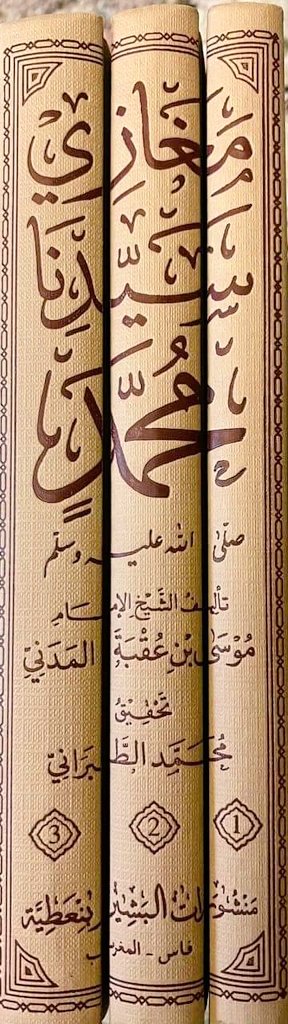 مَغَازِي
سَيِّدِنَا
مُحَمَّدٍ
صلّى الله عليه وسلّم
تأليف الشّيخ الإمام
مُوسَى بْنِ عُقْبَةَ المَدَنِيّ
تَحْقِيقُ
مُحَمَّد الطَّبَرَانِيّ
1 2 3
منشورات البَشِير بنعَطِيَّة
فاس - المغرب